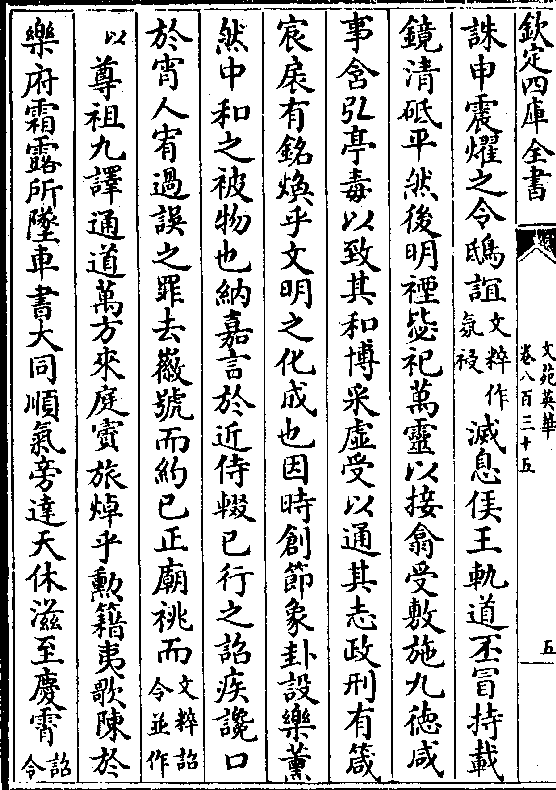 欽定四庫全書
文苑英華
卷八百三十五
五
誅申震燿之令鴟誼文粹作氛祲滅息侯王軌道丕冒持載
鏡清砥平然後明禋毖祀萬靈以接翕受敷施九德咸
事含弘亭毒以致其和博采虛受以通其志政刑有箴
宸扆有銘煥乎文明之化成也因時創節象卦設樂薰
然中和之被物也納嘉言於近侍輟已行之詔疾讒口
於宵人宥過誤之罪去徽號而約己正廟祧而文粹詔令並作
以尊祖九譯通道萬方來庭賨旅焯乎勲籍夷歌陳於
樂府霜露所墜車書大同順氣旁達天休滋至慶霄詔令